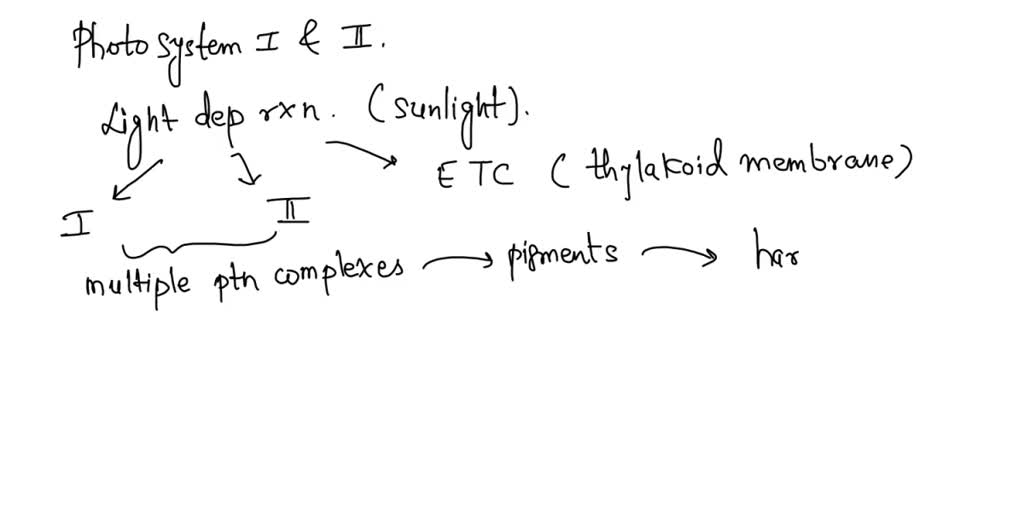 Photo system I & II.
Light dep rxn. (sunlight).
ETC (thylakoid membrane)
I II
multiple ptn complexes → pigments → har